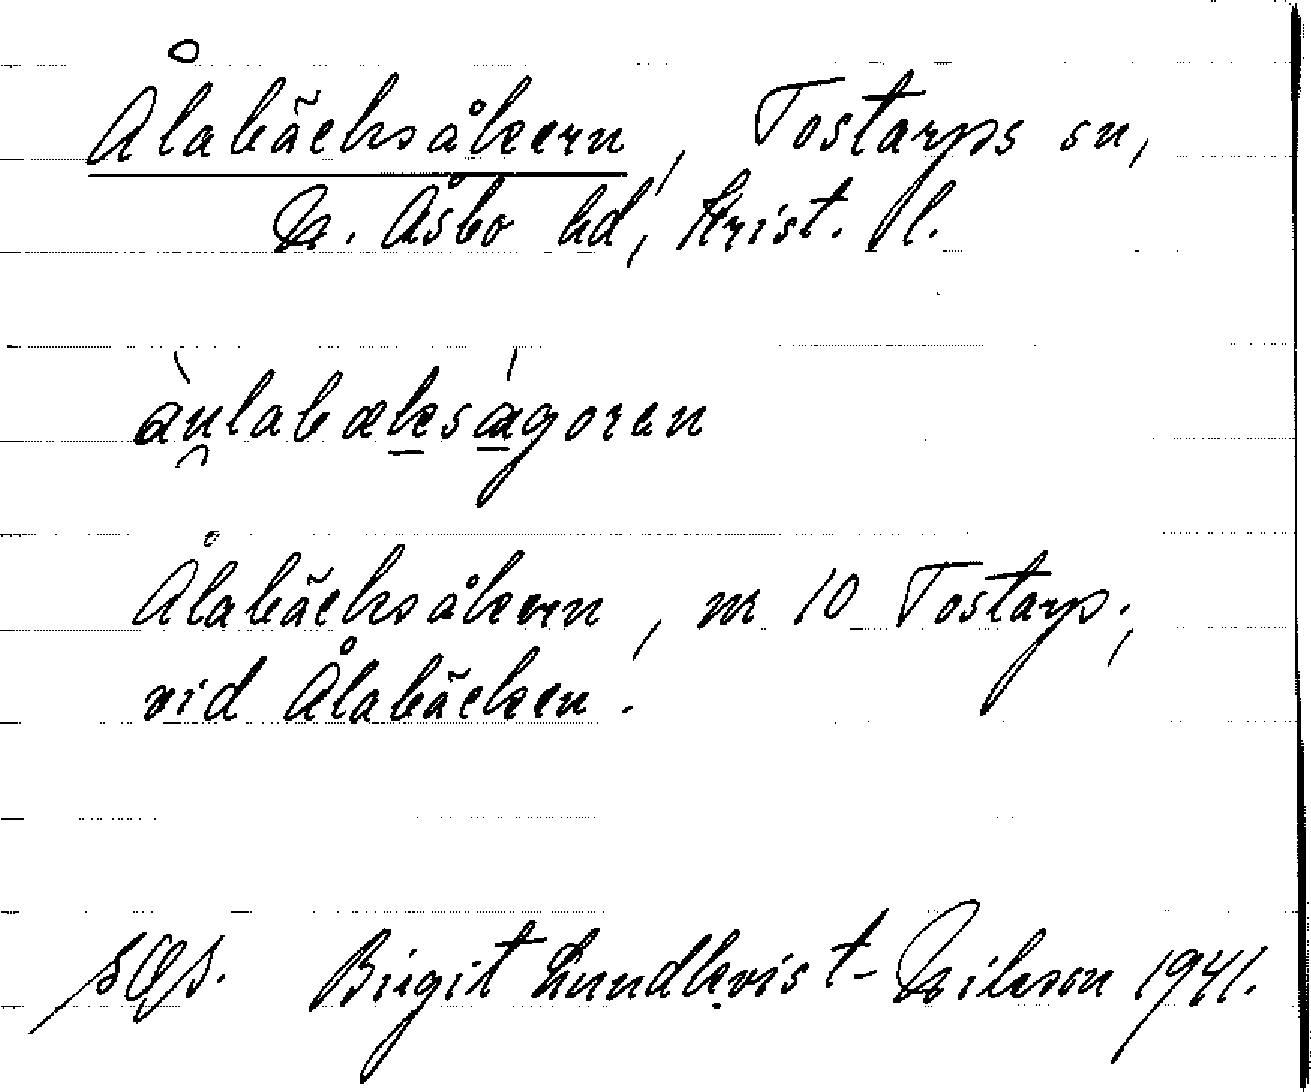 Ålabäcksåkern, Tostarps sn,
N. Åsbo hd, Krist. l.
àu̯labækságoren
Ålabäcksåkern, nr 10 Tostarp;
vid Ålabäcken.
Birgit Lundkvist-Nilsson 1941.